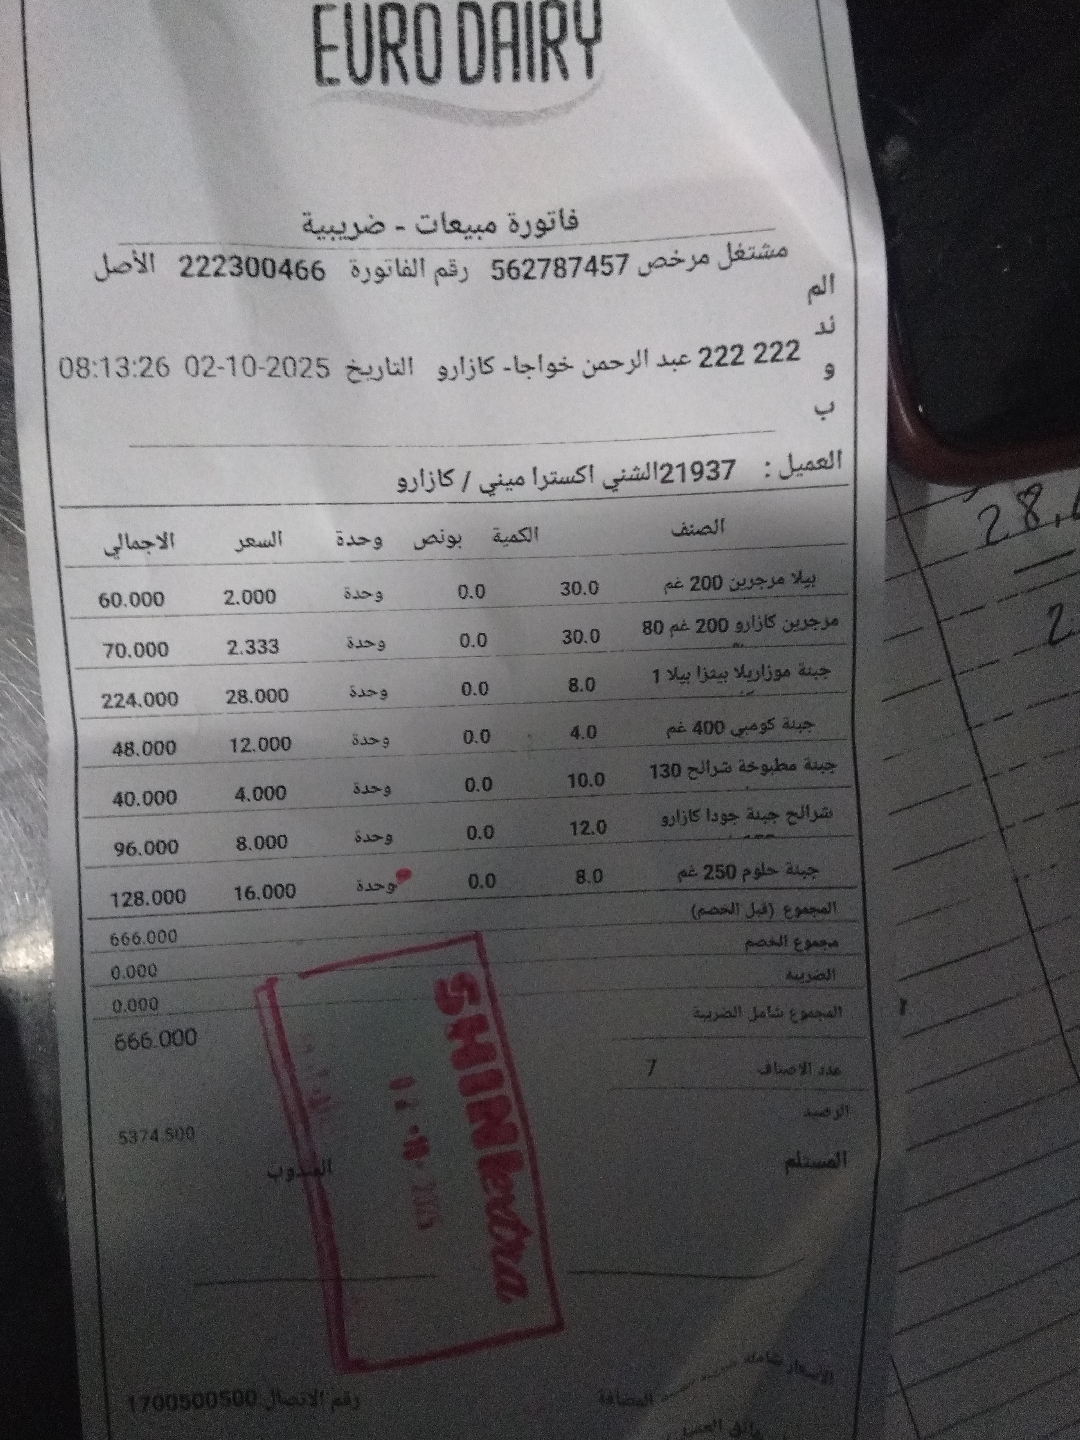 EURO DAIRY
فاتورة مبيعات - ضريبية
مشتغل مرخص 562787457 رقم الفاتورة 222300466 الأصل
المندوب 222 222 عبد الرحمن خواجا- كازارو التاريخ 02-10-2025 08:13:26
العميل : 21937الشني اكسترا ميني / كازارو
الصنف الكمية بونص وحدة السعر الاجمالي
بيلا مرجرين 200 غم 30.0 0.0 وحدة 2.000 60.000
مرجرين كازارو 200 غم 80 30.0 0.0 وحدة 2.333 70.000
جبنة موزاريلا بيتزا بيلا 1 8.0 0.0 وحدة 28.000 224.000
جبنة كومبي 400 غم 4.0 0.0 وحدة 12.000 48.000
جبنة مطبوخة شرائح 130 10.0 0.0 وحدة 4.000 40.000
شرائح جبنة جودا كازارو 12.0 0.0 وحدة 8.000 96.000
جبنة حلوم 250 غم 8.0 0.0 وحدة 16.000 128.000
المجموع (قبل الخصم) 666.000
مجموع الخصم 0.000
الضريبه 0.000
المجموع شامل الضريبة 666.000
عدد الاصناف 7
الرصيد 5374.500
المستلم المندوب
SHINI extra
الأسعار شاملة المضافة
رقم الاتصال 1700500500